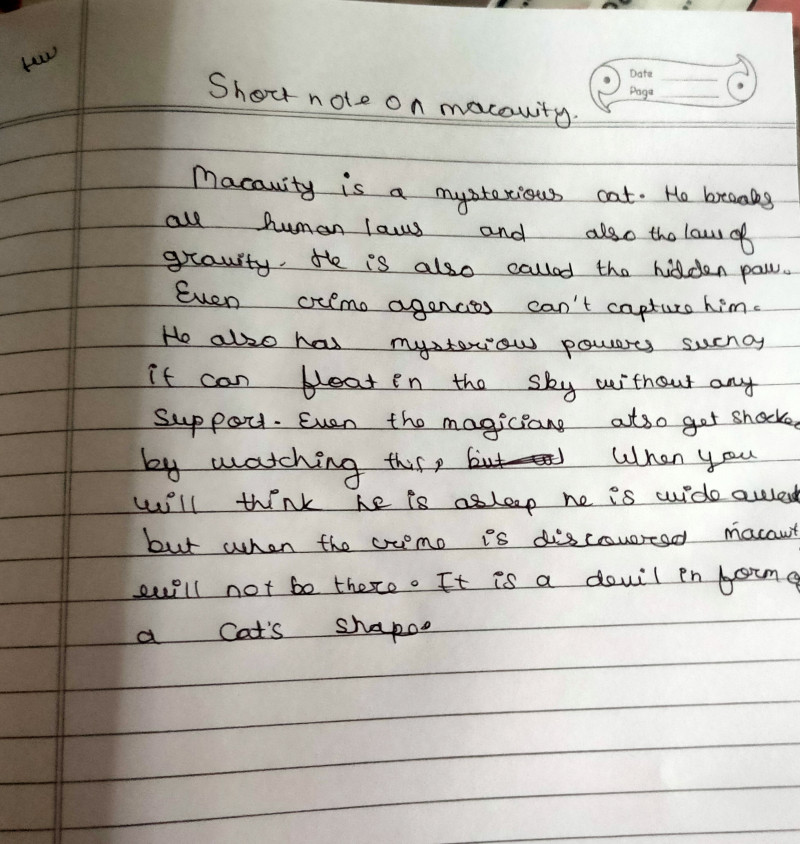 HW
Date
Page
Short note on macavity.
Macavity is a mysterious cat. He breaks
all human laws and also the law of
gravity. He is also called the hidden paw.
Even crime agencies can't capture him.
He also has mysterious powers such as
it can float in the sky without any
support. Even the magicians also get shocked
by watching this, but When you
will think he is asleep he is wide awake
but when the crime is discovered macavit
will not be there. It is a devil in form of
a cat's shape.